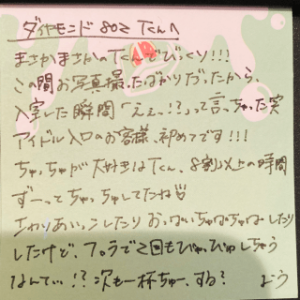 ダイヤモンド 80z Tくんへ
まさかまさかのTくんでびっくり!!!
この間お写真撮ったばかりだったから、
入室した瞬間「えぇっ!?」って言っちゃった笑
アイドル入口のお客様、初めてです!!!
ちゅっちゅが大好きなTくん、8割以上の時間
ずーってちゅっちゅしてたね
したり おっぱいちゅぱちゅぱしたり
したけど、フェラで2回もぴゅっぴゅしちゃう
なんて…!? 次も一杯ちゅー、する?